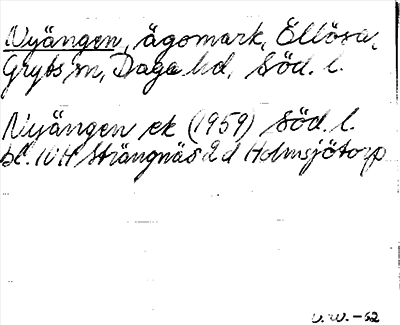 Nyängen, ägomark, Ellösa,
Gryts sn, Daga hd, Söd. l.
Nyängen ek (1959) Söd. l.
bl. 10H Strängnäs 2d Holmsjötorp
V.W. -62